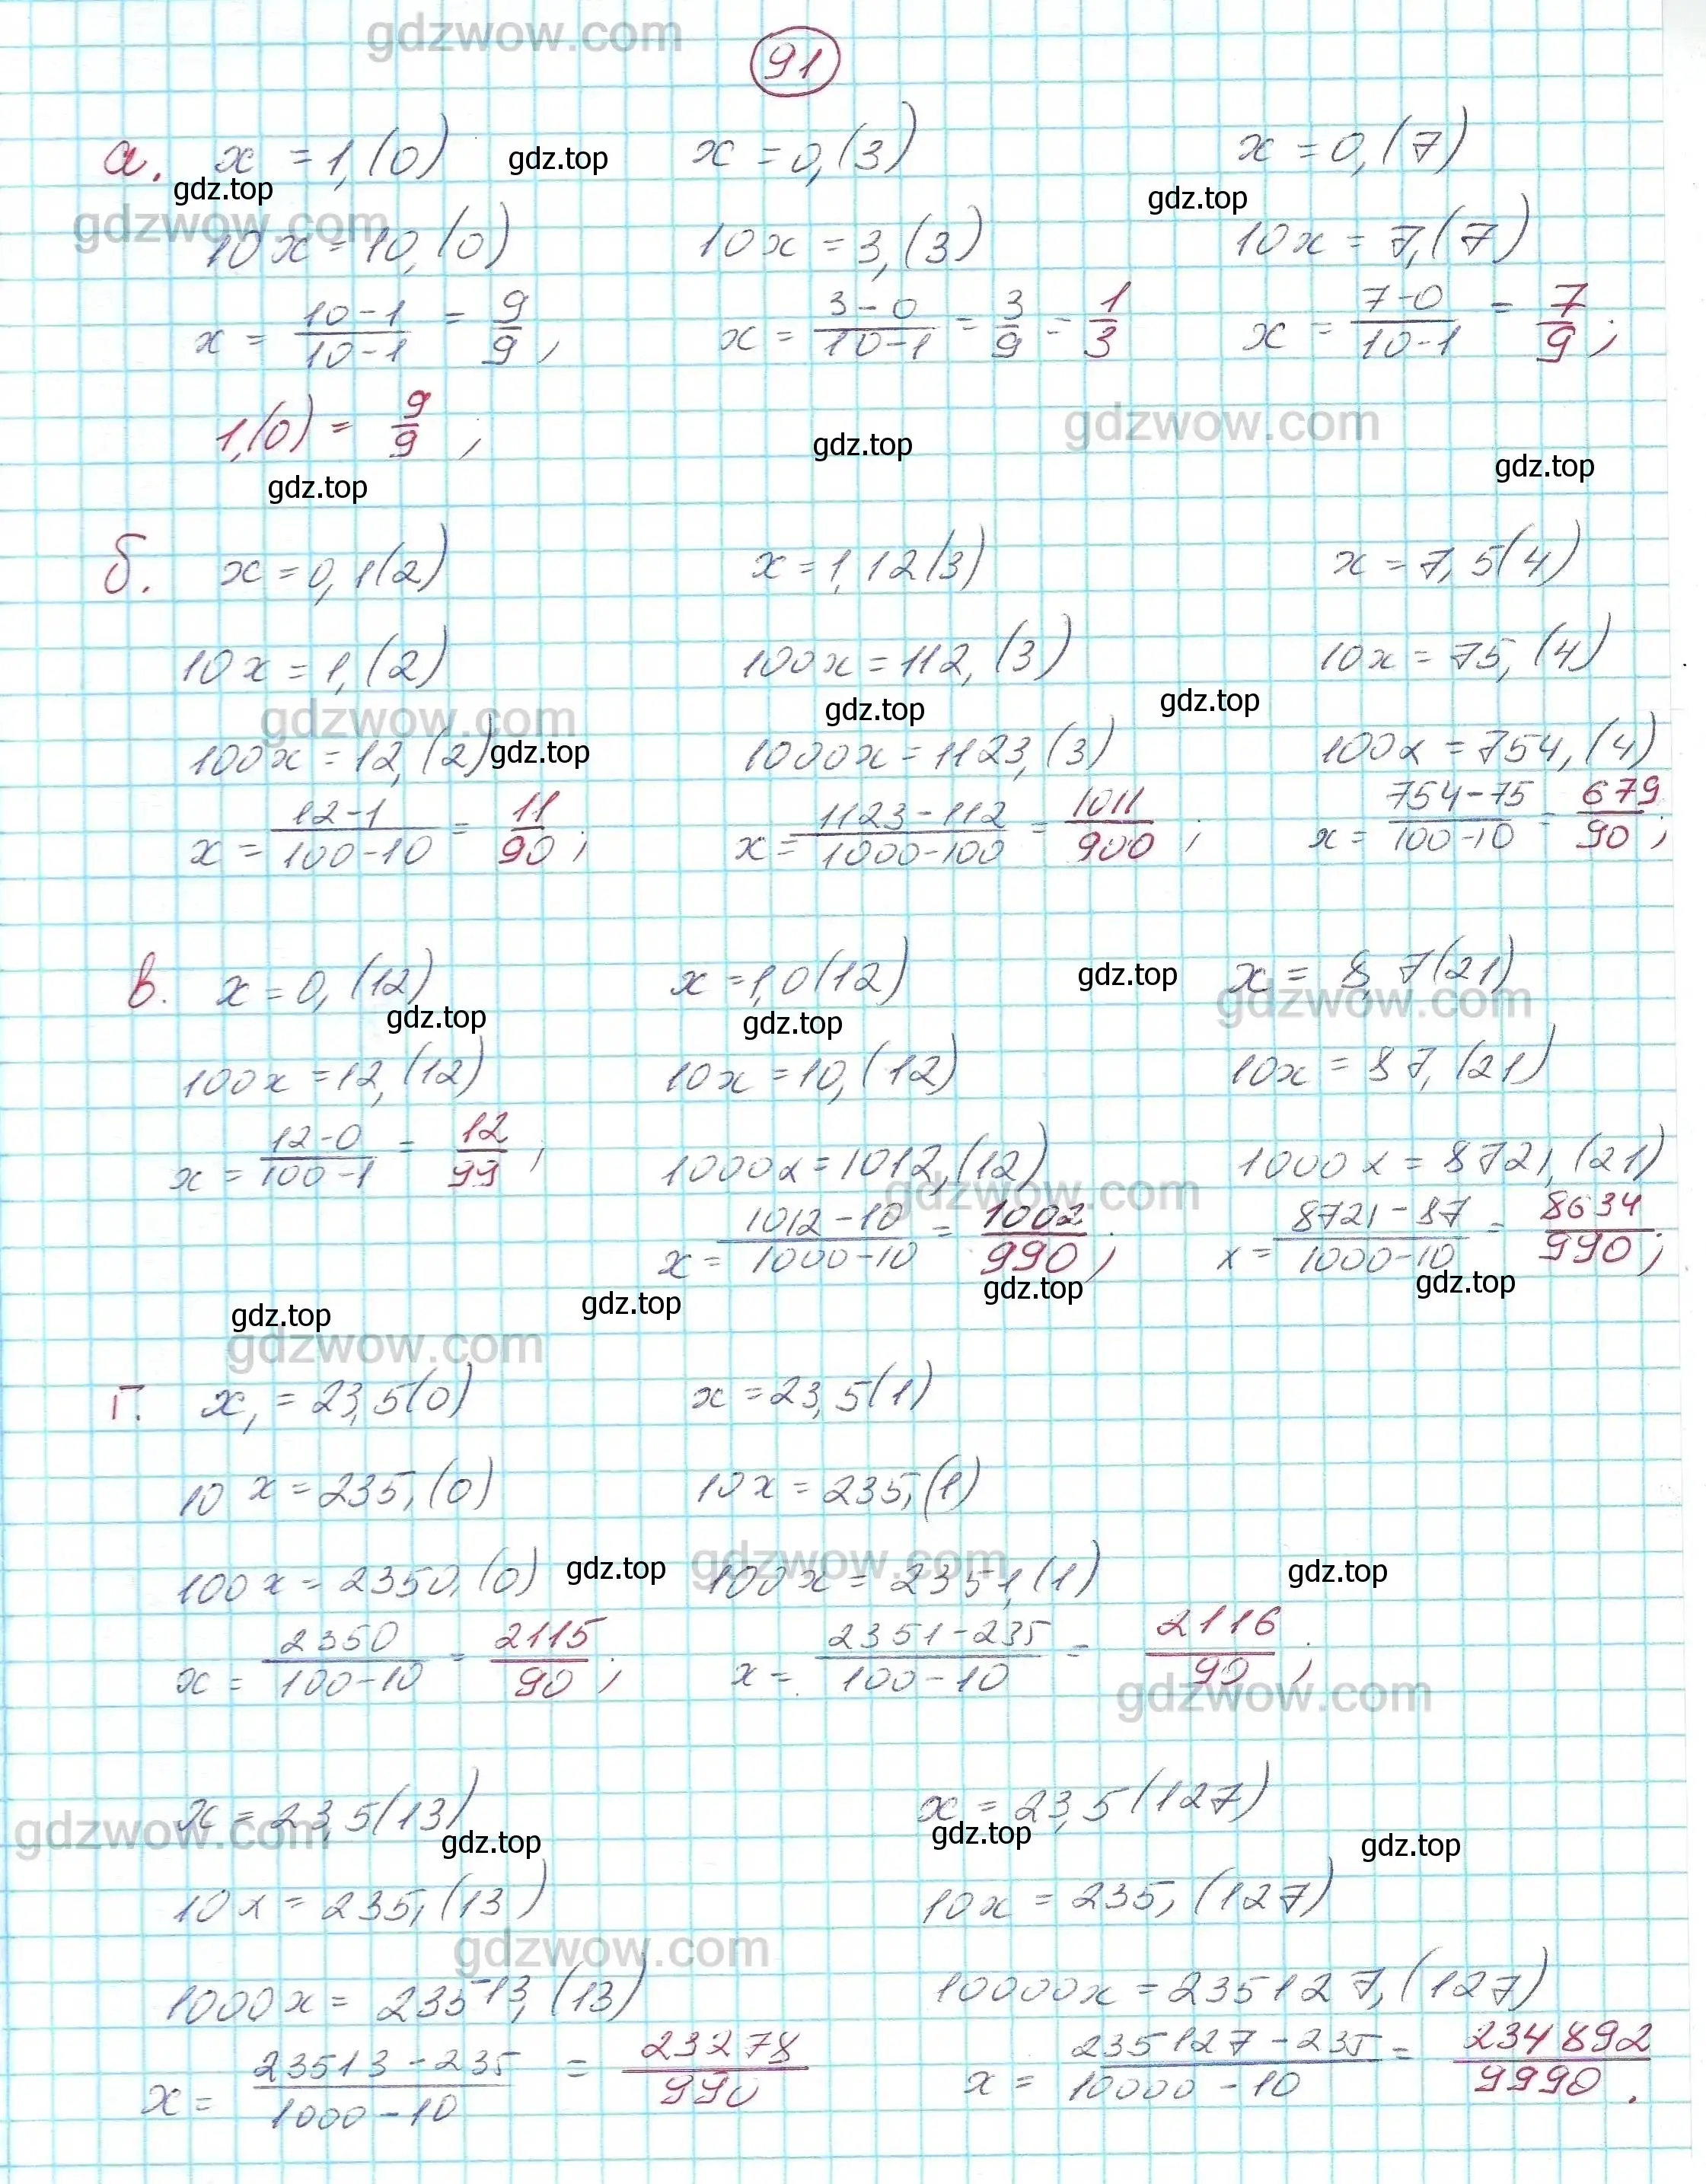 gdzwow.com
91
а. x = 1,(0) gdz.top x = 0,(3) x = 0,(7)
gdz.top gdz.top
gdzwow.com
10x = 10,(0) 10x = 3,(3) 10x = 7,(7)
x = (10-1)/(10-1) = 9/9, x = (3-0)/(10-1) = 3/9 = 1/3 x = (7-0)/(10-1) = 7/9;
1,(0) = 9/9; gdz.top gdzwow.com
gdz.top gdz.top
б. x = 0,1(2) x = 1,12(3) x = 7,5(4)
10x = 1,(2) 100x = 112,(3) 10x = 75,(4)
gdzwow.com gdz.top gdz.top
100x = 12,(2) gdz.top 1000x = 1123,(3) 100x = 754,(4)
x = (12-1)/(100-10) = 11/90; x = (1123-112)/(1000-100) = 1011/900; x = (754-75)/(100-10) = 679/90;
в. x = 0,(12) x = 1,0(12) gdz.top x = 8,7(21)
gdz.top gdz.top gdzwow.com
100x = 12,(12) 10x = 10,(12) 10x = 87,(21)
x = (12-0)/(100-1) = 12/99; 1000x = 1012,(12) 1000x = 8721,(21)
gdzwow.com
x = (1012-10)/(1000-10) = 1002/990; x = (8721-87)/(1000-10) = 8634/990;
gdz.top gdz.top gdz.top gdz.top
gdzwow.com
г. x, = 23,5(0) x = 23,5(1)
10x = 235,(0) 10x = 235,(1)
100x = 2350,(0) gdz.top gdzwow.com 100x = 2351,(1) gdz.top
x = 2350/(100-10) = 2115/90; x = (2351-235)/(100-10) = 2116/90;
gdzwow.com
x = 23,5(13) x = 23,5(127)
gdzwow.com gdz.top gdz.top gdz.top
10x = 235,(13) 10x = 235,(127)
gdzwow.com
1000x = 23513,(13) 10000x = 235127,(127)
x = (23513-235)/(1000-10) = 23278/990 x = (235127-235)/(10000-10) = 234892/9990.